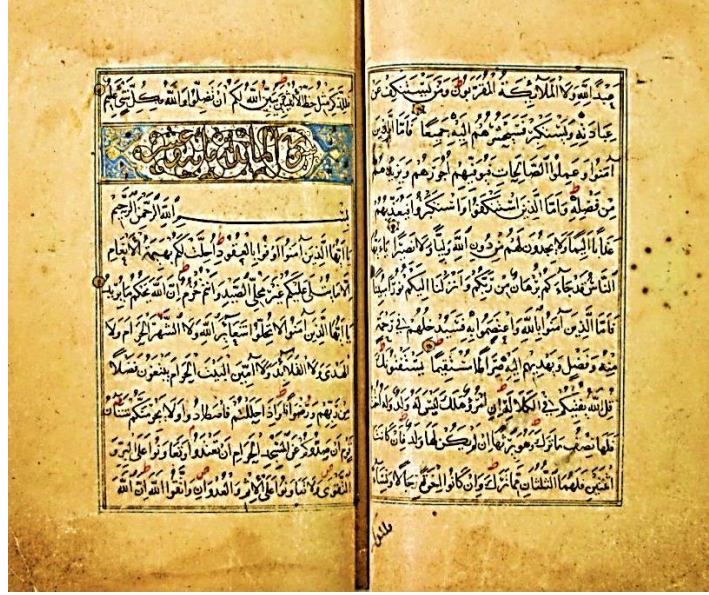 عبدا لله ولا الملائكة المقربون ومن يستنكف عن
عبادته ويستكبر فسيحشرهم اليه جميعا فاما الذين
آمنوا وعملوا الصالحات فيوفيهم اجورهم ويزيدهم
من فضله واما الذين استنكفوا واستكبروا فيعذبهم
عذابا اليما ولا يجدون لهم من دون الله وليا ولا نصيرا يا ايها
الناس قد جاءكم برهان من ربكم وانزلنا اليكم نورا مبينا
فاما الذين آمنوا بالله واعتصموا به فسيدخلهم في رحمة
منه وفضل ويهديهم اليه صراطا مستقيما يستفتونك
قل الله يفتيكم في الكلالة ان امرؤ هلك ليس له ولد وله اخت
فلها نصف ما ترك وهو يرثها ان لم يكن لها ولد فان كانتا
اثنتين فلهما الثلثان مما ترك وان كانوا اخوة رجالا ونساء
فللذكر مثل حظ الانثيين يبين الله لكم ان تضلوا والله بكل شيء عليم
سورة المائدة مائة
بسم الله الرحمن الرحيم
يا ايها الذين آمنوا اوفوا بالعقود احلت لكم بهيمة الانعام
الا ما يتلى عليكم غير محلي الصيد وانتم حرم ان الله يحكم ما يريد
يا ايها الذين آمنوا لا تحلوا شعائر الله ولا الشهر الحرام ولا
الهدي ولا القلائد ولا آمين البيت الحرام يبتغون فضلا
من ربهم ورضوانا واذا حللتم فاصطادوا ولا يجرمنكم شنآن
قوم ان صدوكم عن المسجد الحرام ان تعتدوا وتعاونوا على البر و
التقوى ولا تعاونوا على الاثم والعدوان واتقوا الله ان الله